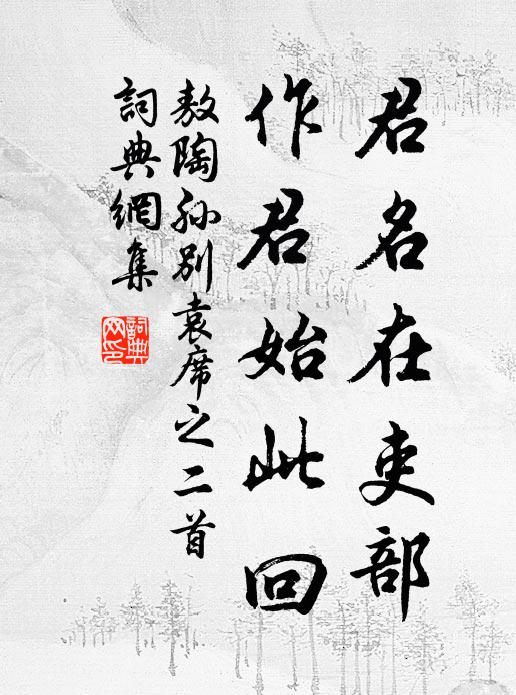 君名在吏部
作君始此回
敖陶孙别袁席之二首
詞典網集
詞典網印